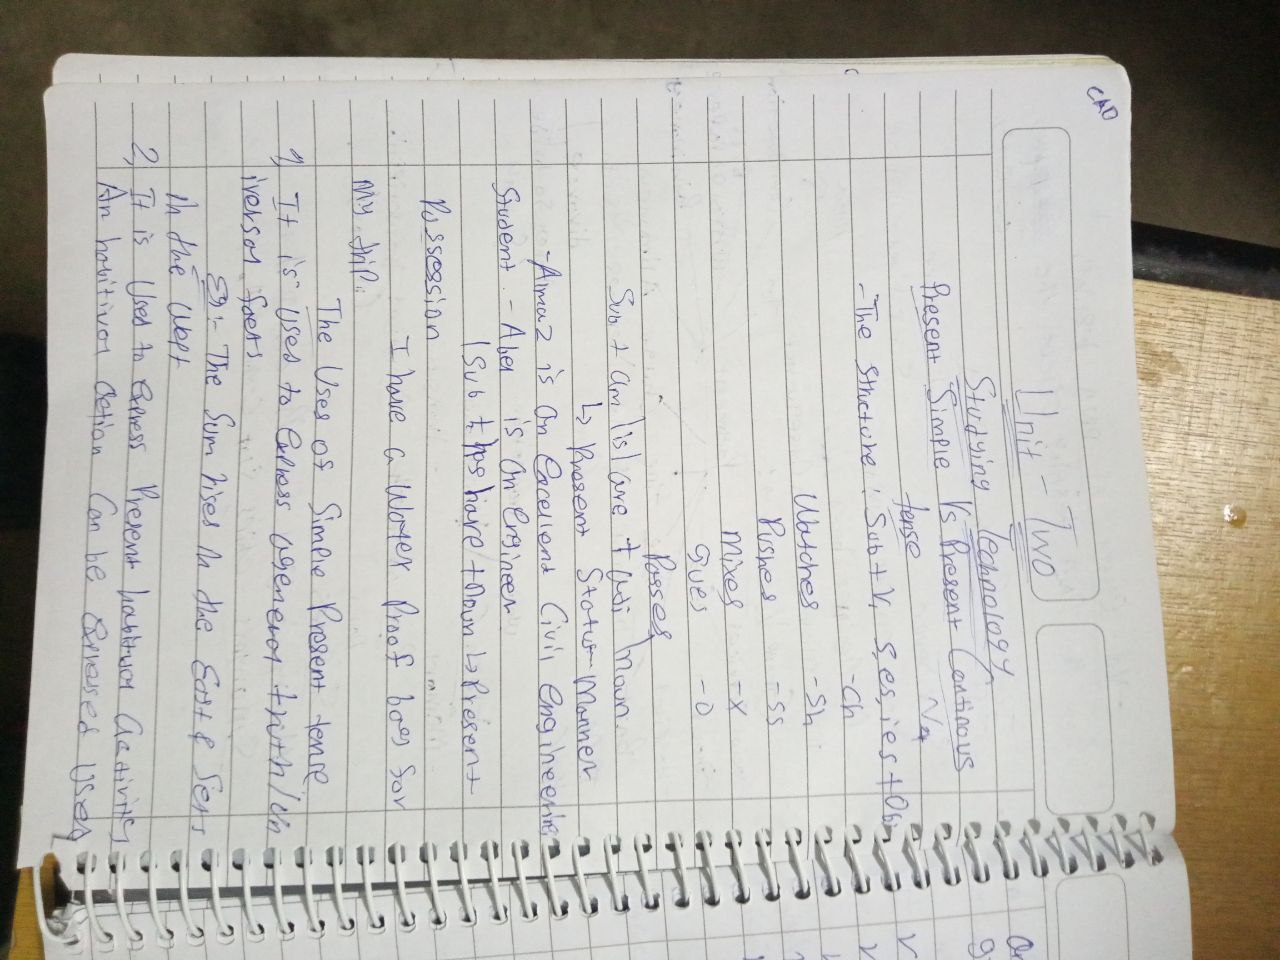 CAD
Unit - Two
Studying Technology
Present Simple Vs Present Continous
tense
-The structure: Sub + V1 s, es, ies + Obj
-Ch
Watches -Sh
Pushes -SS
Mixes -X
Gues -O
Passes
Sub + am/is/are + Adj/Noun
↳ Present Status-Manner
-Almaz is an Excelent Civil engineering
Student. - Abel is an engineer
Sub + has/have + Noun ↳ Present
Possession
I have a Water Proof baes for
my trip.
The Uses of Simple Present tense
1, It is Used to express general truth/un
iversal facts
Ex:- The Sun rises in the East & Sets
in the West
2, It is Used to express Present habitual activities
An habitual action Can be expressed Used